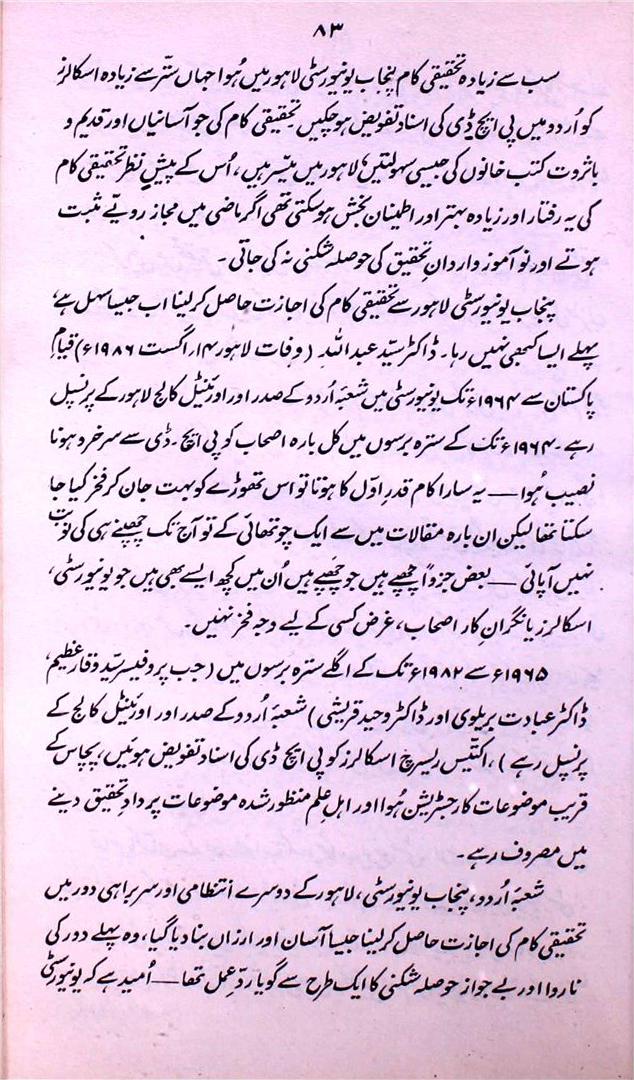 ۸۳
سب سے زیادہ تحقیقی کام پنجاب یونیورسٹی لاہور میں ہُوا جہاں ستّر سے زیادہ اسکالرز
کو اُردو میں پی ایچ ڈی کی اسناد تفویض ہو چکیں۔ تحقیقی کام کی جو آسانیاں اور قدیم و
باثروت کتب خانوں کی جیسی سہولتیں لاہور میں میسّر ہیں، اُس کے پیشِ نظر تحقیقی کام
کی یہ رفتار اور زیادہ بہتر اور اطینان بخش ہو سکتی تھی اگر ماضی میں مجاز رویّے مثبت
ہوتے اور نو آموز واردانِ تحقیق کی حوصلہ شکنی نہ کی جاتی۔
پنجاب یونیورسٹی لاہور سے تحقیقی کام کی اجازت حاصل کر لینا اب جیسا سہل ہے،
پہلے ایسا کبھی نہیں رہا۔ ڈاکٹر سیّد عبداللہ (وفات لاہور ۱۴، اگست ۱۹۸۶ء) قیامِ
پاکستان سے ۱۹۶۴ء تک یونیورسٹی میں شعبۂ اُردو کے صدر اور اورینٹیل کالج لاہور کے پرنسپل
رہے۔ ۱۹۶۴ء تک کے سترہ برسوں میں کل بارہ اصحاب کو پی ایچ۔ ڈی سے سرخرو ہونا
نصیب ہُوا — یہ سارا کام قدرِ اوّل کا ہوتا تو اس تھوڑے کو بہت جان کر فخر کیا جا
سکتا تھا لیکن ان بارہ مقالات میں سے ایک چوتھائی کے تو آج تک چھپنے ہی کی نوبت
نہیں آ پائی — بعض جزواً چھپے ہیں جو چھپے ہیں اُن میں کچھ ایسے بھی ہیں جو یونیورسٹی،
اسکالرز یا نگرانِ کار اصحاب، غرض کسی کے لیے وجہ فخر نہیں۔
۱۹۶۵ء سے ۱۹۸۲ء تک کے اگلے سترہ برسوں میں (جب پروفیسر سیّد وقار عظیم،
ڈاکٹر عبادت بریلوی اور ڈاکٹر وحید قریشی) شعبۂ اُردو کے صدر اور اورینٹل کالج کے
پرنسپل رہے)، اکتیس ریسرچ اسکالرز کو پی ایچ ڈی کی اسناد تفویض ہوئیں، پچاس کے
قریب موضوعات کا رجسٹریشن ہُوا اور اہلِ علِم منظور شدہ موضوعات پر دادِ تحقیق دینے
میں مصروف رہے۔
شعبۂ اُردو، پنجاب یونیورسٹی، لاہور کے دوسرے انتظامی اور سربراہی دور میں
تحقیقی کام کی اجازت حاصل کر لینا جیسا آسان اور ارزاں بنا دیا گیا، وہ پہلے دور کی
ناروا اور بے جواز حوصلہ شکنی کا ایک طرح سے گویا ردِّ عمل تھا — اُمید ہے کہ یونیورسٹی